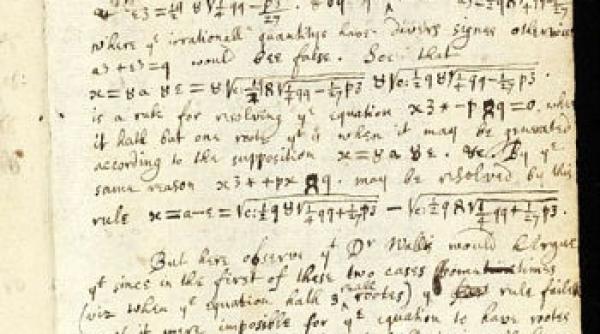 where yᵉ irrationall quantitys have divers signes otherwise
a3+e3=q would bee false. Soe that
x=ȣa ȣe=ȣ√c:½qȣ√¼qq−1/27p3 ȣ√c:½q8√¼qq−1/27p3.
is a rule for resolving yᵉ equation x3*−p 8q=0. when
it hath but one roote yᵗ is when it may be generated
according to the supposition x=ȣa ȣe. By yᵉ
same reason x3*+px 8q. may be resolved by this
rule x=a−e=√c:½qȣ√¼qq+1/27p3 − √c:½q8√¼qq+1/27p3.
But here observe yᵗ Dʳ Wallis would Argue
yᵗ since in the first of these two cases sometimes
(viz when yᵉ equation hath 3 reall rootes) yᵉ rule faile
it were impossible for yᵉ equation to have rootes